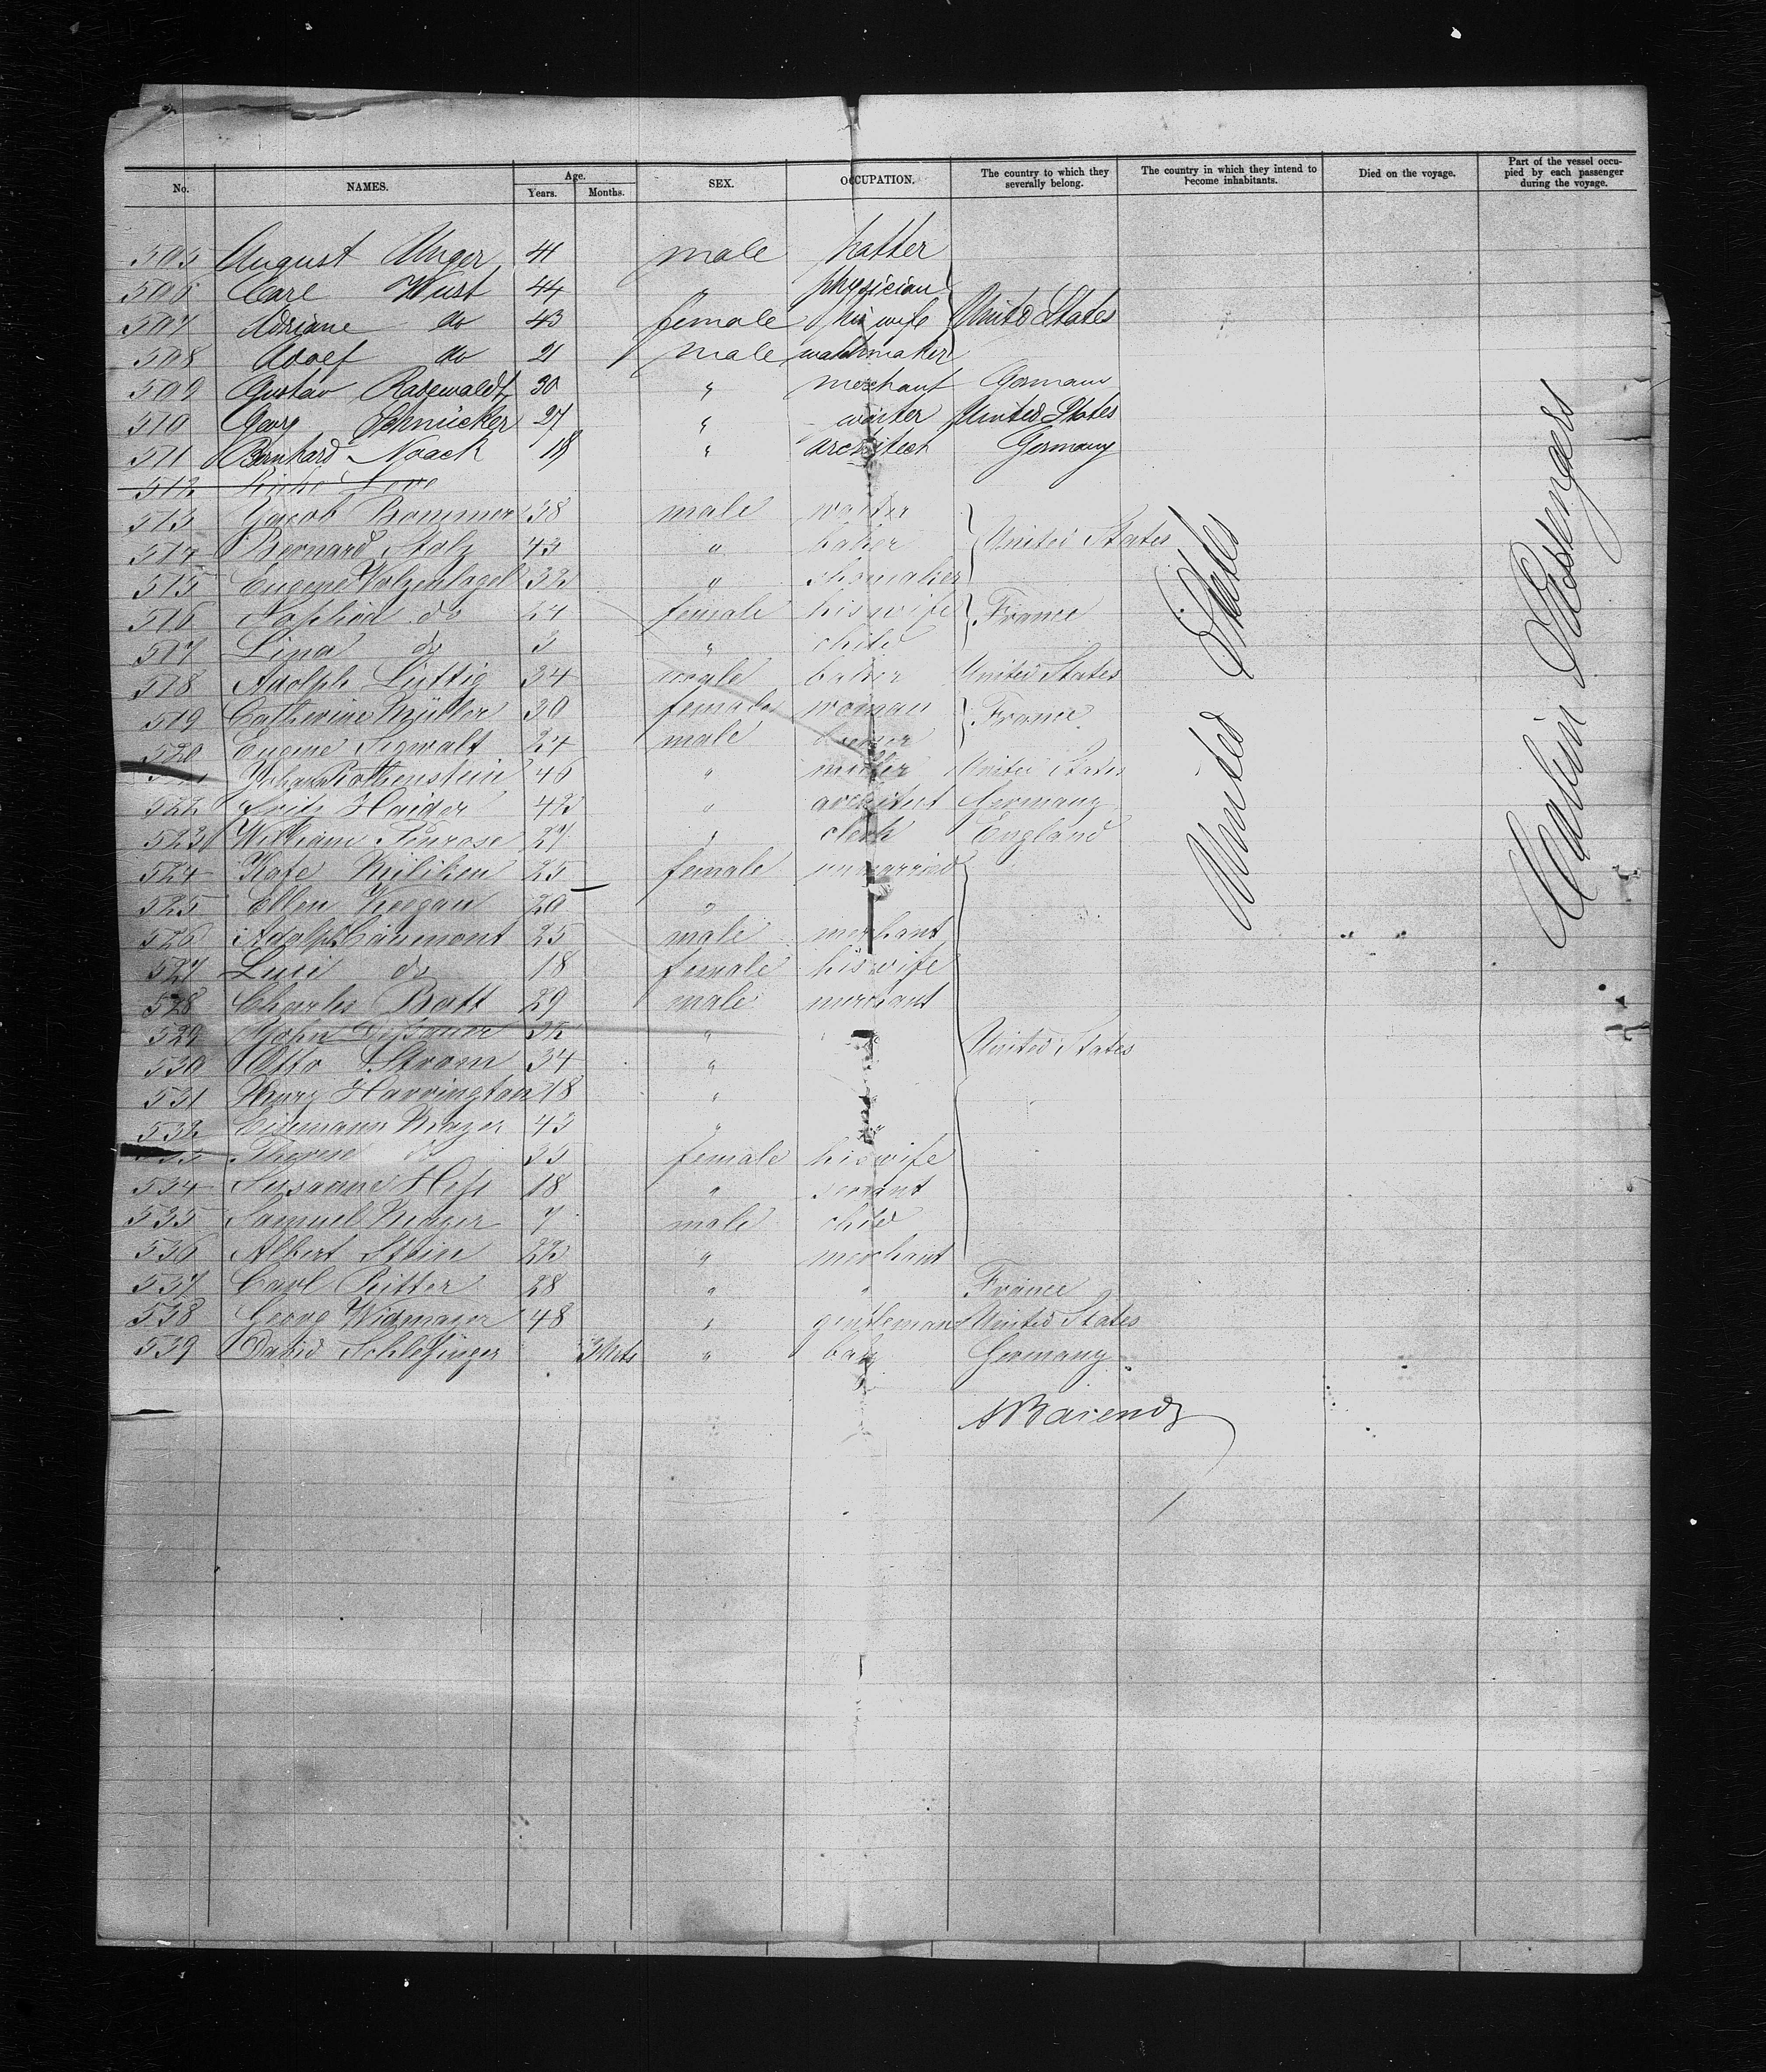 No. NAMES. Age. Years. Months. SEX. OCCUPATION. The country to which they severally belong. The country in which they intend to become inhabitants. Died on the voyage. Part of the vessel occupied by each passenger during the voyage.
505 August Unger 41 male hatter
506 Carl Wust 44 " physician
507 Adriane do 43 female his wife United States
508 Adolf do 21 male watchmaker
509 Gustav 30 " merchant Germany
510 Georg Schnücker 27 " waiter United States
511 Bernhard Noack 18 " architect Germany
512
513 Jacob Bommer 38 male waiter
514 Bernard Stolz 43 " baker United States
515 Eugene 32 " shomaker
516 Sophia do 24 female his wife France
517 Lina do 3 " child
518 Adolph Lüttig 34 male baker United States
519 Catherine Müller 30 female woman France
520 Eugene Sigwalt 24 male
Rothenstein 46 " United States
522 Fritz Haider 42 " architect Germany
523 William Penrose 27 " clerk England
524 Kate Miliken 25 female unmarried
525 Ellen Keegan 20 "
526 Adolph Caumont 25 male merchant
527 Luci do 18 female his wife
528 Charles Batt 29 male merchant
529 John 32 " United States
530 Otto Strom 34 "
531 Henry Harrington 18 "
532 Mayer 43 " "
Therese do 35 female his wife
534 Susanne Hess 18 " servant
535 Samuel Mayer 7 male child
536 Albert Stein 22 " merchant
537 Carl Ritter 28 " " France
538 Georg Widmayer 48 " gentleman United States
539 David Schlesinger 3 Mts " baby Germany
United States
Cabin Passengers